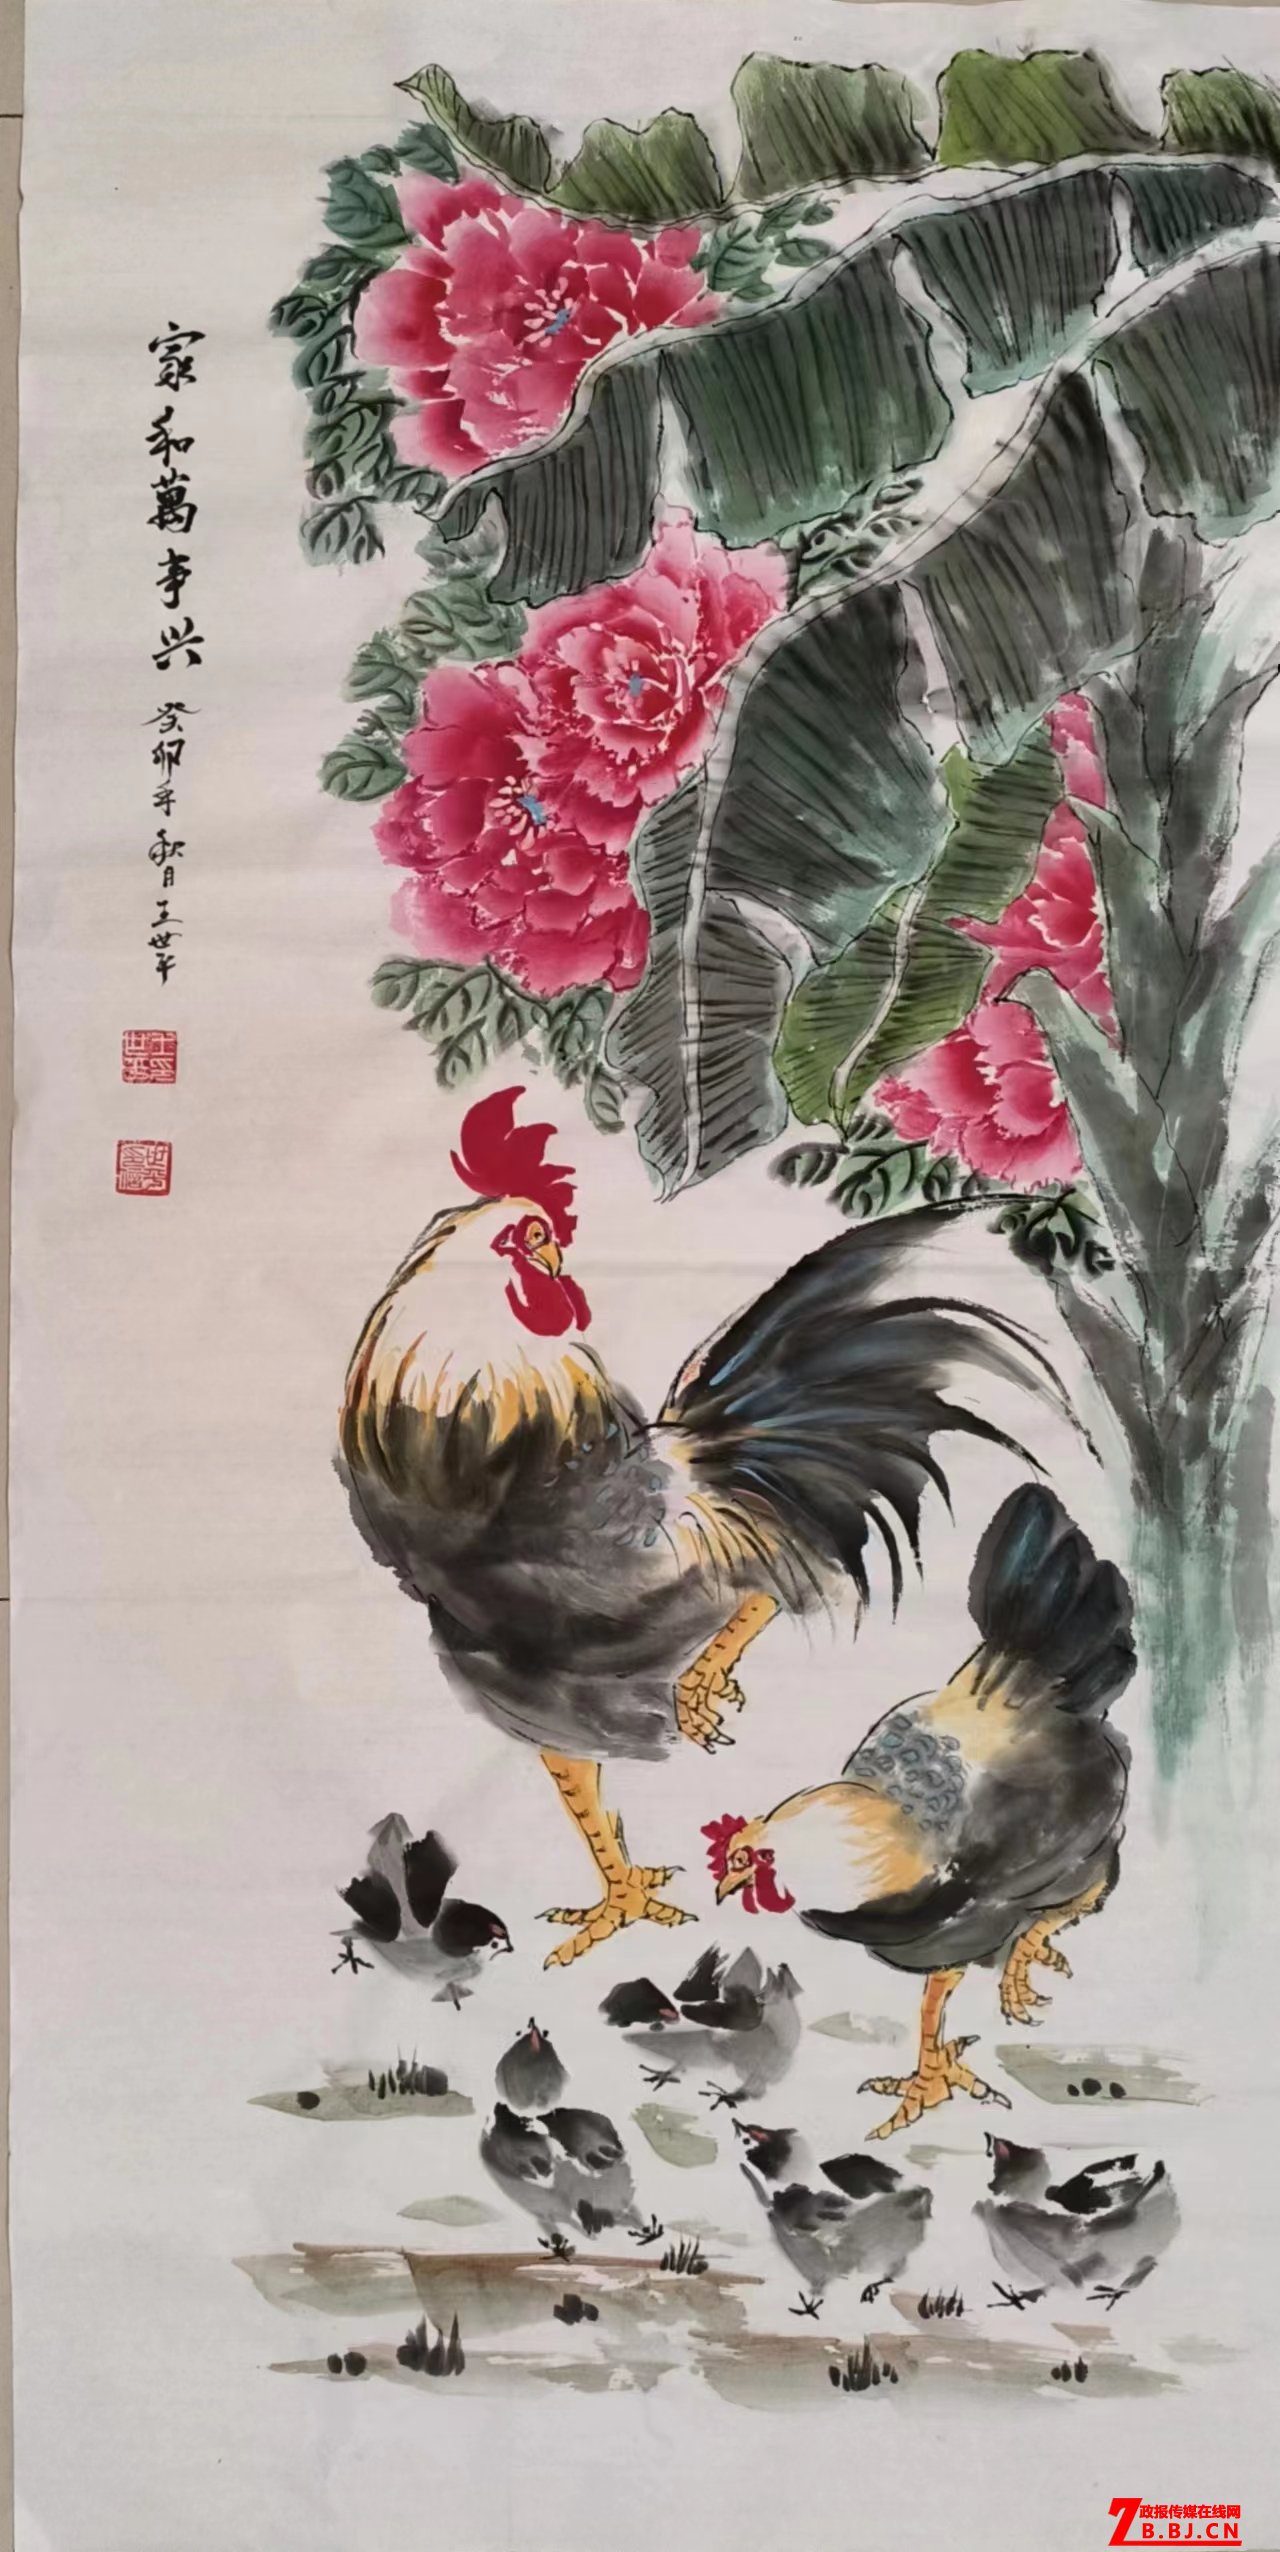 家和萬事兴
癸卯年秋月王世平
政报传媒在线网
ZB.BJ.CN